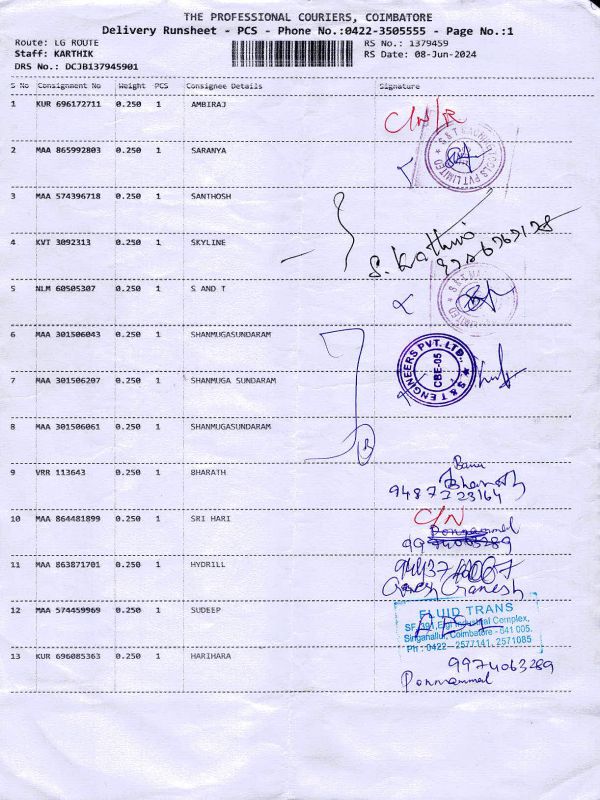 THE PROFESSIONAL COURIERS, COIMBATORE
Delivery Runsheet - PCS - Phone No.:0422-3505555 - Page No.:1
Route: LG ROUTE
RS No.: 1379459
Staff: KARTHIK
RS Date: 08-Jun-2024
DRS No.: DCJB137945901
S No Consignment No Weight PCS Consignee Details Signature
1 KUR 696172711 0.250 1 AMBIRAJ
2 MAA 865992803 0.250 1 SARANYA
3 MAA 574396718 0.250 1 SANTHOSH
4 KVT 3092313 0.250 1 SKYLINE
S. Karthi
5 NLM 60505307 0.250 1 S AND T
6 MAA 301506043 0.250 1 SHANMUGASUNDARAM
S & T ENGINEERS PVT. LTD.,
CBE-05
7 MAA 301506207 0.250 1 SHANMUGA SUNDARAM
8 MAA 301506061 0.250 1 SHANMUGASUNDARAM
9 VRR 113643 0.250 1 BHARATH
Bharath
9487323164
10 MAA 864481899 0.250 1 SRI HARI
C/N
11 MAA 863871701 0.250 1 HYDRILL
Ganesh
12 MAA 574459969 0.250 1 SUDEEP
FLUID TRANS
SF.391, Elgi Industrial Complex,
Singanallur, Coimbatore - 641 005.
Ph : 0422 - 2577141, 2571085
13 KUR 696085363 0.250 1 HARIHARA
9974063289
Ponnammal